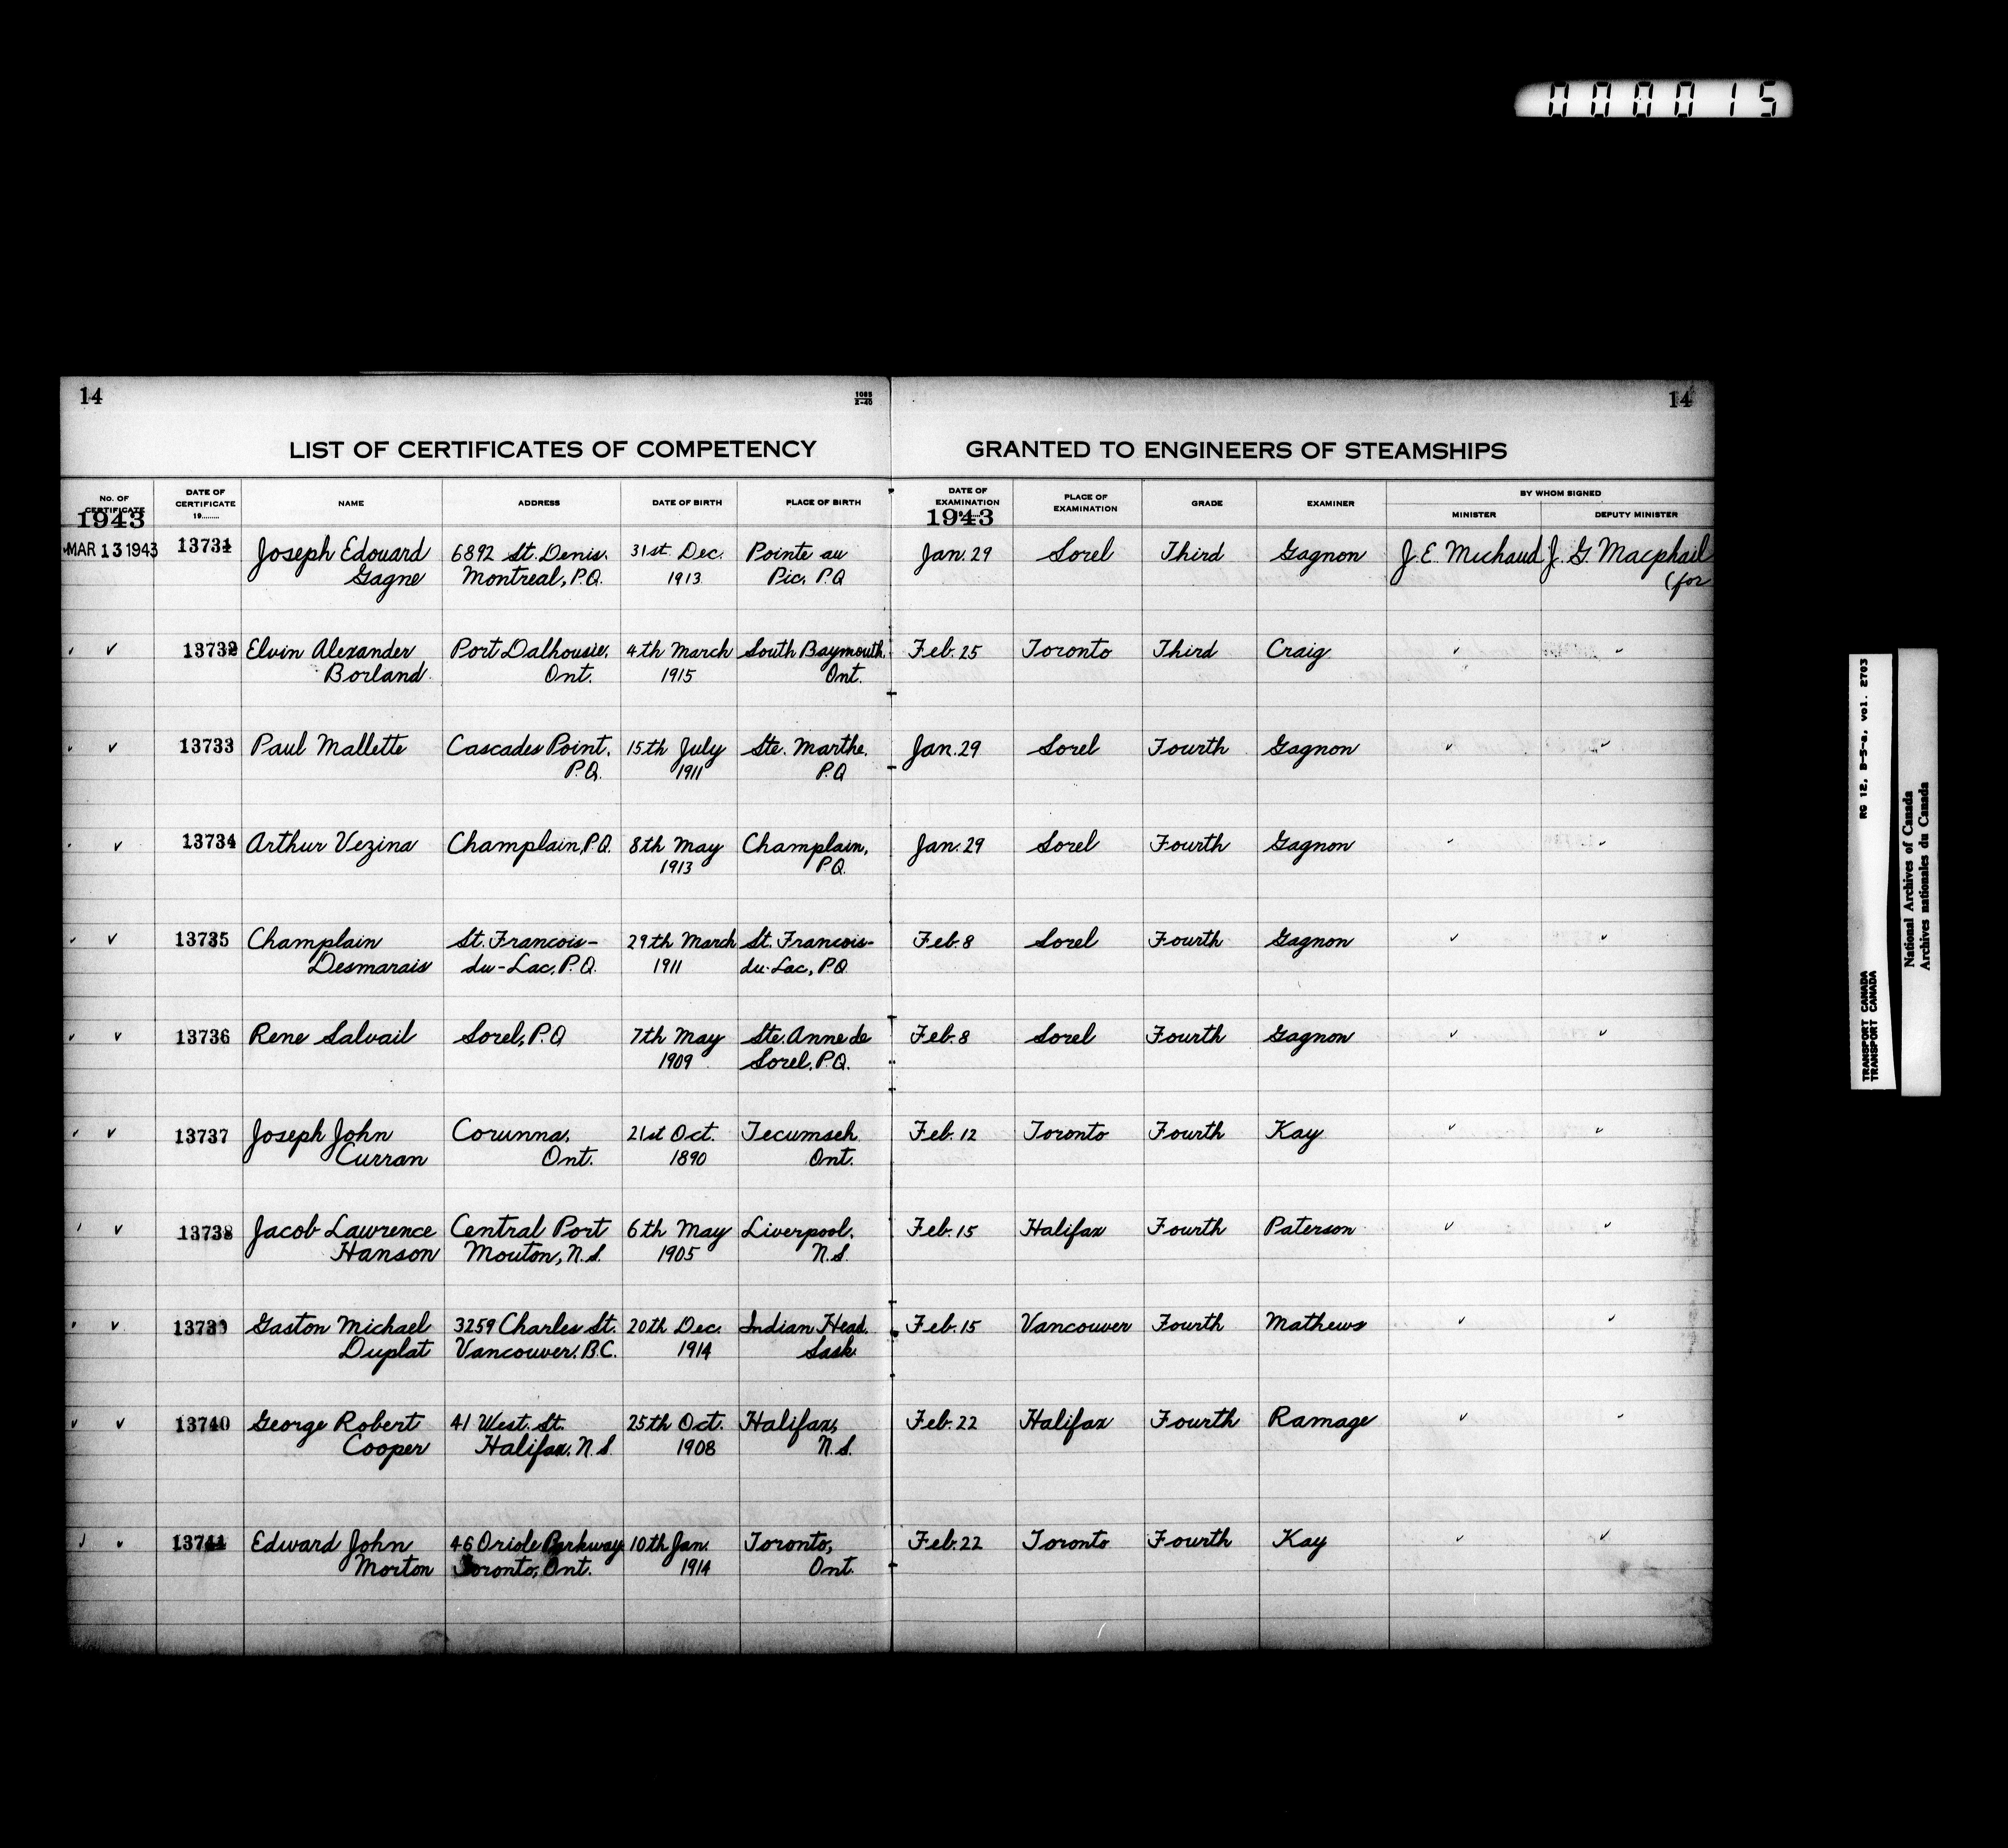 000015
14
1085
X-40
14
LIST OF CERTIFICATES OF COMPETENCY GRANTED TO ENGINEERS OF STEAMSHIPS
No. OF CERTIFICATE
1943
DATE OF CERTIFICATE 19........
NAME
ADDRESS
DATE OF BIRTH
PLACE OF BIRTH
DATE OF EXAMINATION
1943
PLACE OF EXAMINATION
GRADE
EXAMINER
BY WHOM SIGNED
MINISTER
DEPUTY MINISTER
MAR 13 1943 13731 Joseph Edouard 6892 St. Denis. 31st. Dec. Pointe au Jan. 29 Sorel Third Gagnon J. E. Michaud J. G. Macphail
Gagne Montreal, P.Q. 1913 Pic. P.Q (for
✓ ✓ 13732 Elvin Alexander Port Dalhousie. 4th March South Baymouth. Feb. 25 Toronto Third Craig ✓ ✓
Borland Ont. 1915 Ont.
✓ ✓ 13733 Paul Mallette Cascades Point. 15th July Ste. Marthe. Jan. 29 Sorel Fourth Gagnon ✓ ✓
P.Q. 1911 P.Q
✓ ✓ 13734 Arthur Vezina Champlain, P.Q. 8th May Champlain, Jan. 29 Sorel Fourth Gagnon ✓ ✓
1913 P.Q.
✓ ✓ 13735 Champlain St. Francois- 29th March St. Francois- Feb. 8 Sorel Fourth Gagnon ✓ ✓
Desmarais du-Lac, P.Q. 1911 du-Lac, P.Q.
✓ ✓ 13736 Rene Salvail Sorel, P.Q 7th May Ste. Anne de Feb. 8 Sorel Fourth Gagnon ✓ ✓
1909 Sorel. P.Q.
✓ ✓ 13737 Joseph John Corunna, 21st Oct. Tecumseh Feb. 12 Toronto Fourth Kay ✓ ✓
Curran Ont. 1890 Ont.
✓ ✓ 13738 Jacob Lawrence Central Port 6th May Liverpool. Feb. 15 Halifax Fourth Paterson ✓ ✓
Hanson Mouton, N.S. 1905 N.S.
✓ ✓ 13739 Gaston Michael 3259 Charles St. 20th Dec. Indian Head. Feb. 15 Vancouver Fourth Mathews ✓ ✓
Duplat Vancouver. B.C. 1914 Sask.
✓ ✓ 13740 George Robert 41 West. St. 25th Oct. Halifax, Feb. 22 Halifax Fourth Ramage ✓ ✓
Cooper Halifax. N.S. 1908 N.S.
✓ ✓ 13741 Edward John 46 Oriole Parkway 10th Jan. Toronto, Feb. 22 Toronto Fourth Kay ✓ ✓
Morton Toronto, Ont. 1914 Ont.
RG 12, B-5-a, vol. 2703
TRANSPORT CANADA
TRANSPORT CANADA
National Archives of Canada
Archives nationales du Canada